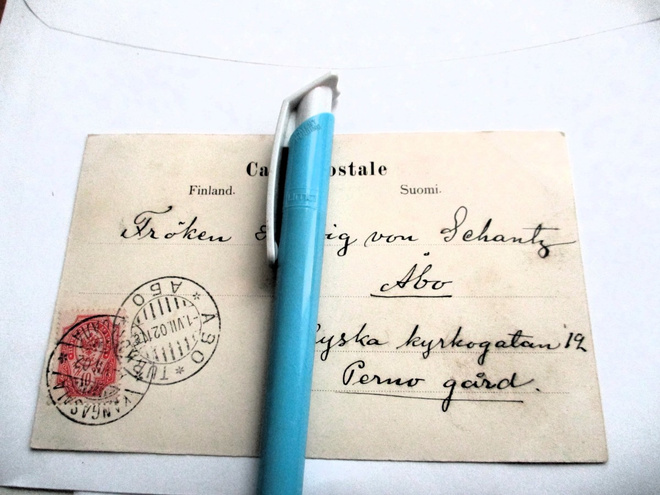 Ca ostale
Finland. Suomi.
Fröken ig von Schantz
Åbo
yska kyrkogatan 12
Perno gård.
ÅBO
-1.VII.02
ABO * TURKU *
KANGASALA